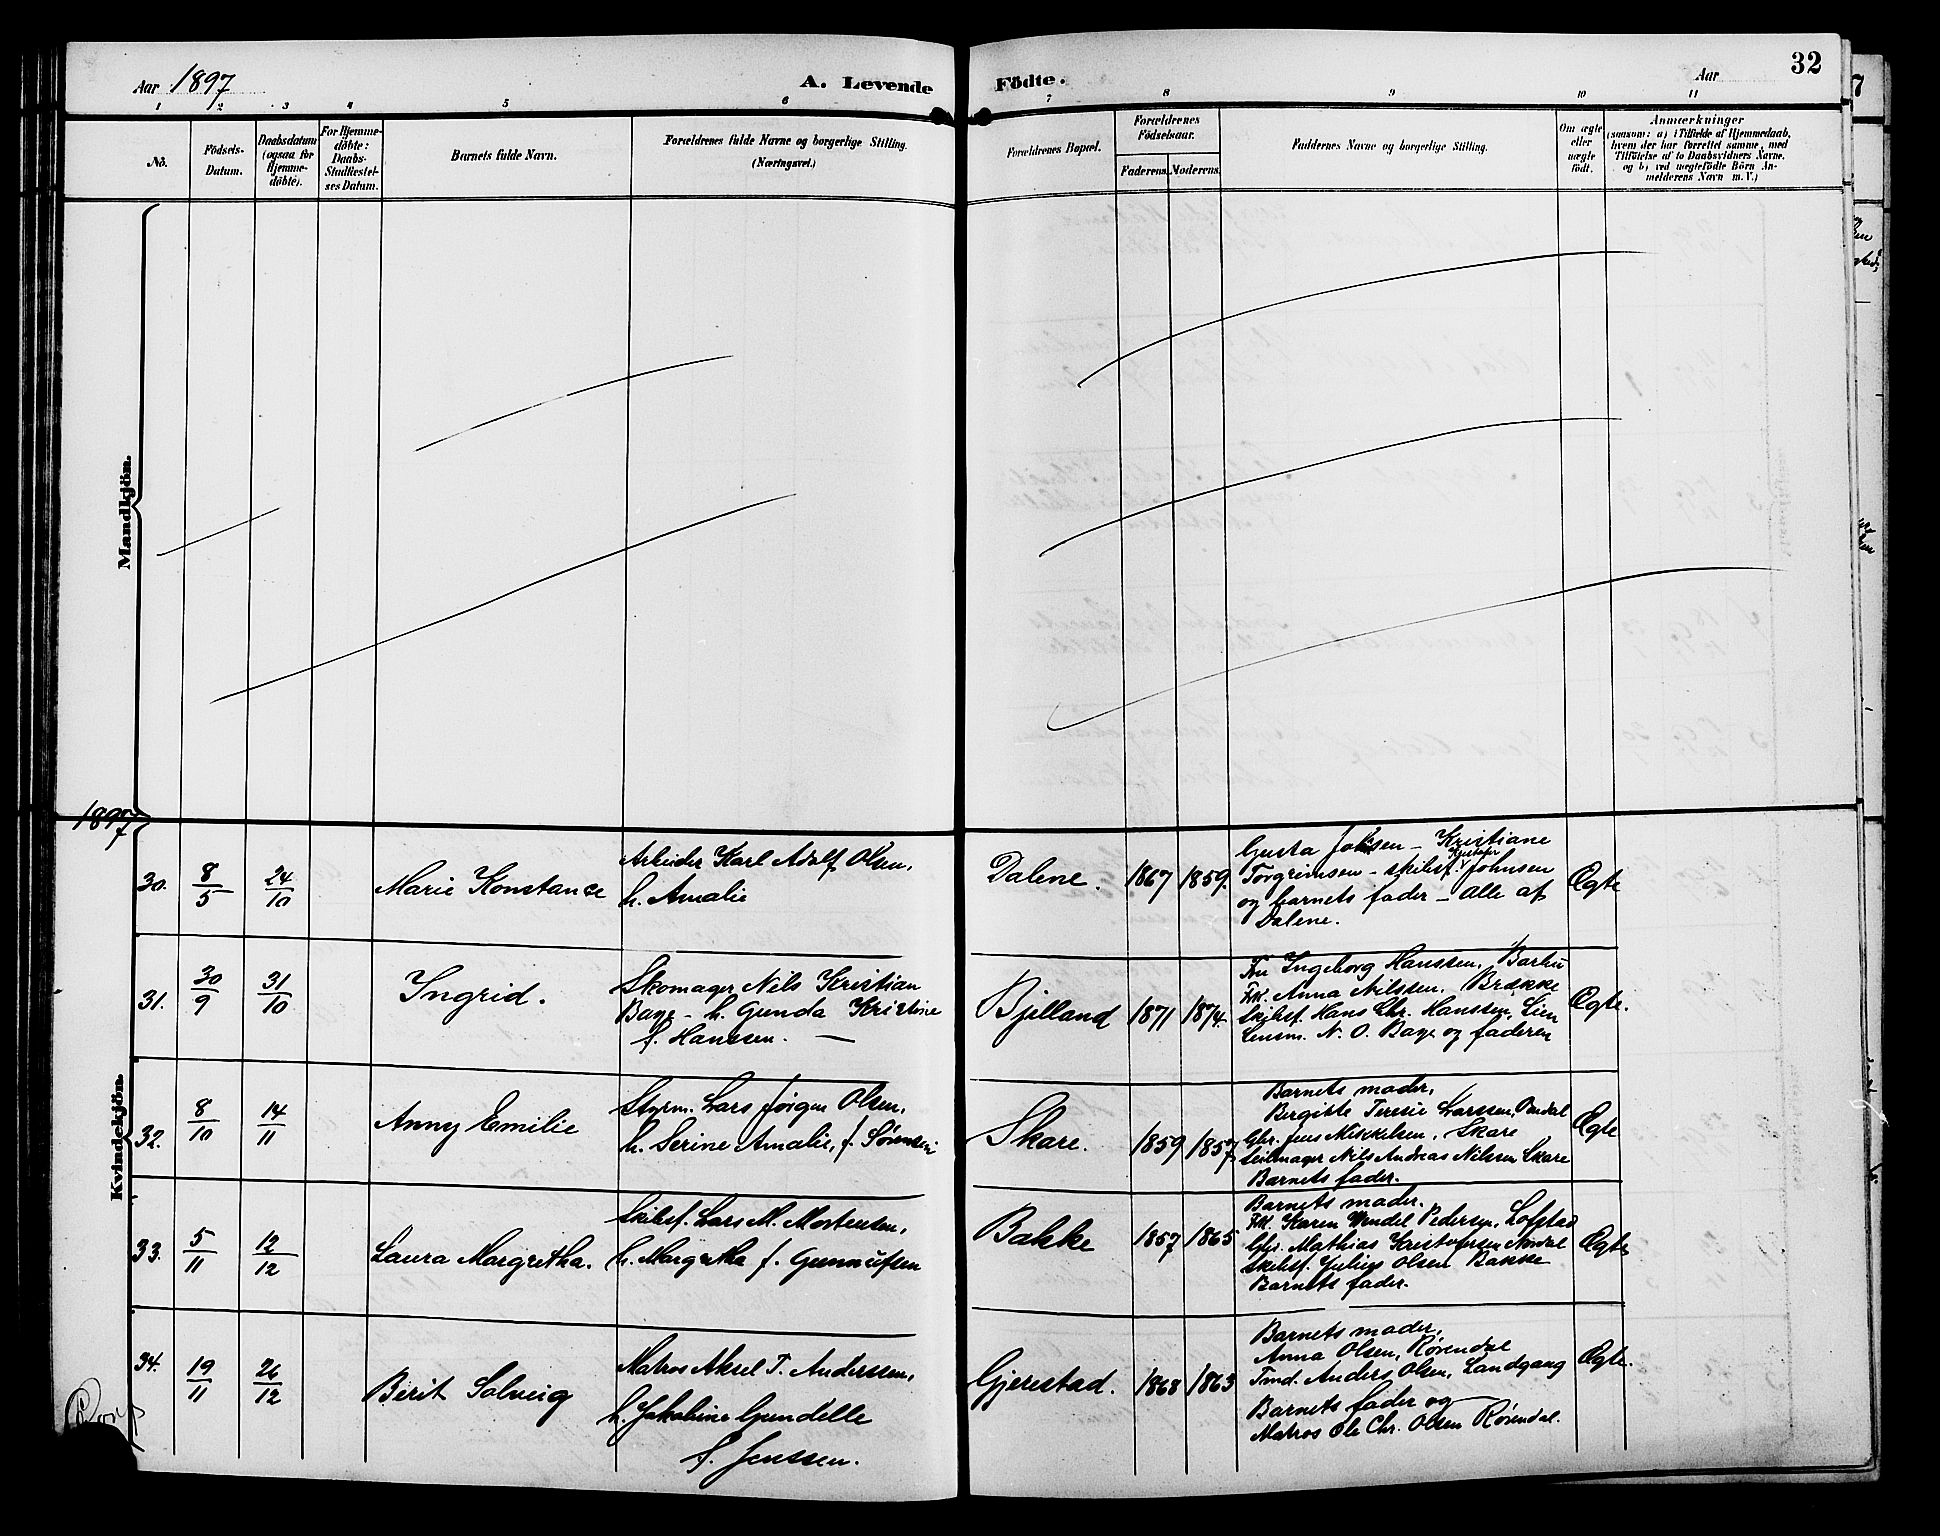 Aar 1897
A. Levende
Födte.
Aar
32
1 2 3 4 5 6 7 8 9 10 11
No.
Födsels-
Datum.
Daabsdatum
(ogsaa for
Hjemme-
døbte).
For Hjemme-
døbte:
Daabs-
Stadfæstel-
ses Datum.
Barnets fulde Navn.
Forældrenes fulde Navne og borgerlige Stilling.
(Næringsvei.)
Forældrenes Bopæl.
Forældrenes
Födselsaar.
Faderens. Moderens.
Faddernes Navne og borgerlige Stilling.
Om ægte
eller
uægte
födt.
Anmærkninger
(saasom: a) i Tilfælde af Hjemmedaab,
hvem der har forrettet samme, med
Tilföielse af to Daabsvidners Navne,
og b) ved uægtefödte Börn An-
melderens Navn m. V.)
Mandkjön.
1897
Kvindekjön.
30.
8/5
24/10
Marie Konstance
Arbeider Karl Adolf Olsen,
h. Amalie
Dalene.
1867
1859.
Gusta Johsen – Kristiane
Torgrimsen – skibsf. Johnsen
og barnets fader – Alle af
Dalene.
Ægte
31.
30/9
31/10
Ingrid.
Skomager Nils Kristian
Baye – h. Gunda Kristine
f. Hanssen. –
Bjelland
1871
1874.
Fru Ingeborg Hanssen, Barbu
Frk. Anna Nilssen, Brække
Skibsf. Hans Chr. Hanssen, Lien
Lensm. N. O. Baye og faderen
Ægte.
32.
8/10
14/11
Anny Emilie
Styrm. Lars Jørgen Olsen,
h. Serine Amalie, f. Sørensen
Skare.
1859
1857
Barnets moder,
Birgitte Teresie Larssen,
Gbr. Jens Mikkelsen, Skare
Seilmager Nils Andreas Nilssen Skare
Barnets fader.
Ægte
33.
5/11
12/12
Laura Margretha.
Skibsf. Lars M. Mortensen,
h. Margretha f. Gunnufsen
Bakke
1857
1865
Barnets moder.
Frk. Karen Wendel Pedersen, Lofstad
Gbr. Mathias Kristofersen
Skibsf. Julius Olsen Bakke
Barnets fader.
Ægte
34.
19/11
26/12
Berit Solveig
Matros Aksel T. Anderssen,
h. Jakobine Gundelle
f. Jenssen.
Gjerestad.
1868
1863
Barnets moder,
Anna Olsen, Rørendal
Tmd. Anders Olsen, Landgang
Barnets fader og
Matros Ole Chr. Olsen Rørendal.
Ægte.